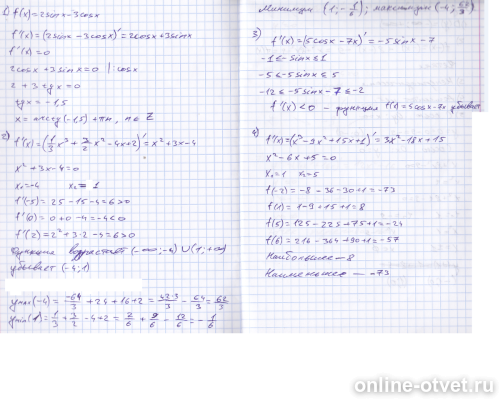 1) f(x)=2sinx-3cosx
f'(x)=(2sinx-3cosx)'=2cosx+3sinx
f'(x)=0
2cosx+3sinx=0 | cosx
2+3tgx=0
tgx=-1,5
x=arctg(-1,5)+πn, n∈Z
2) f'(x)=(1/3x³+3/2x²-4x+2)'=x²+3x-4
x²+3x-4=0
x₁=-4 x₂=1
f'(-5)=25-15-4=6>0
f'(0)=0+0-4=-4<0
f'(2)=2²+3·2-4=6>0
Функция возрастает (-∞;-4)∪(1;+∞)
убывает (-4;1)
ymax(-4)=-64/3+24+16+2=42·3/3-64/3=62/3
ymin(1)=1/3+3/2-4+2=2/6+9/6-12/6=-1/6
Минимум (1;-1/6); максимум (-4;62/3)
3) f'(x)=(5cosx-7x)'=-5sinx-7
-1≤-sinx≤1
-5≤-5sinx≤5
-12≤-5sinx-7≤-2
f'(x)<0 - функция f(x)=5cosx-7x убывает
4) f'(x)=(x³-9x²+15x+1)'=3x²-18x+15
x²-6x+5=0
x₁=1 x₂=5
f(-2)=-8-36-30+1=-73
f(1)=1-9+15+1=8
f(5)=125-225+75+1=-24
f(6)=216-364+90+1=-57
Наибольшее - 8
Наименьшее - -73
online-otvet.ru